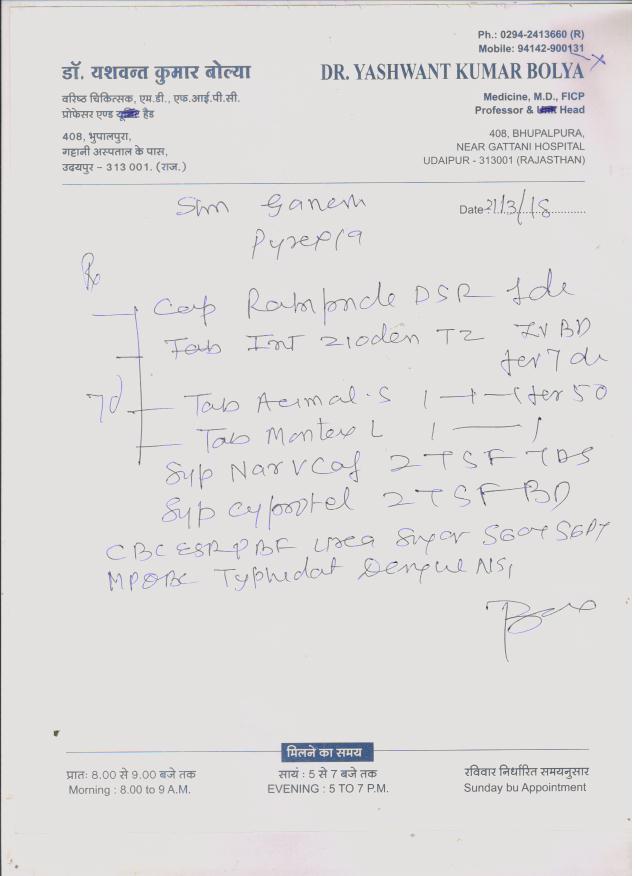 Ph.: 0294-2413660 (R)
Mobile: 94142-900131
डॉ. यशवन्त कुमार बोल्या
DR. YASHWANT KUMAR BOLYA
वरिष्ठ चिकित्सक, एम.डी., एफ.आई.पी.सी.
प्रोफेसर एण्ड हैड
Medicine, M.D., FICP
Professor & Head
408, भुपालपुरा,
गट्टानी अस्पताल के पास,
उदयपुर - 313 001. (राज.)
408, BHUPALPURA,
NEAR GATTANI HOSPITAL
UDAIPUR - 313001 (RAJASTHAN)
Ganesh
Date 21/3/18
Pyrexia
Rx
Cap DSR
Tab BD
7 d
7d Tab 1-1-1 for 5d
Tab L 1 — 1
Syp 2 TSF TDS
Syp 2 TSF BD
CBC ESR PBF Urea Sugar SGOT SGPT
Typhidot Dengue NS1
मिलने का समय
प्रातः 8.00 से 9.00 बजे तक
Morning : 8.00 to 9 A.M.
सायं : 5 से 7 बजे तक
EVENING : 5 TO 7 P.M.
रविवार निर्धारित समयनुसार
Sunday bu Appointment